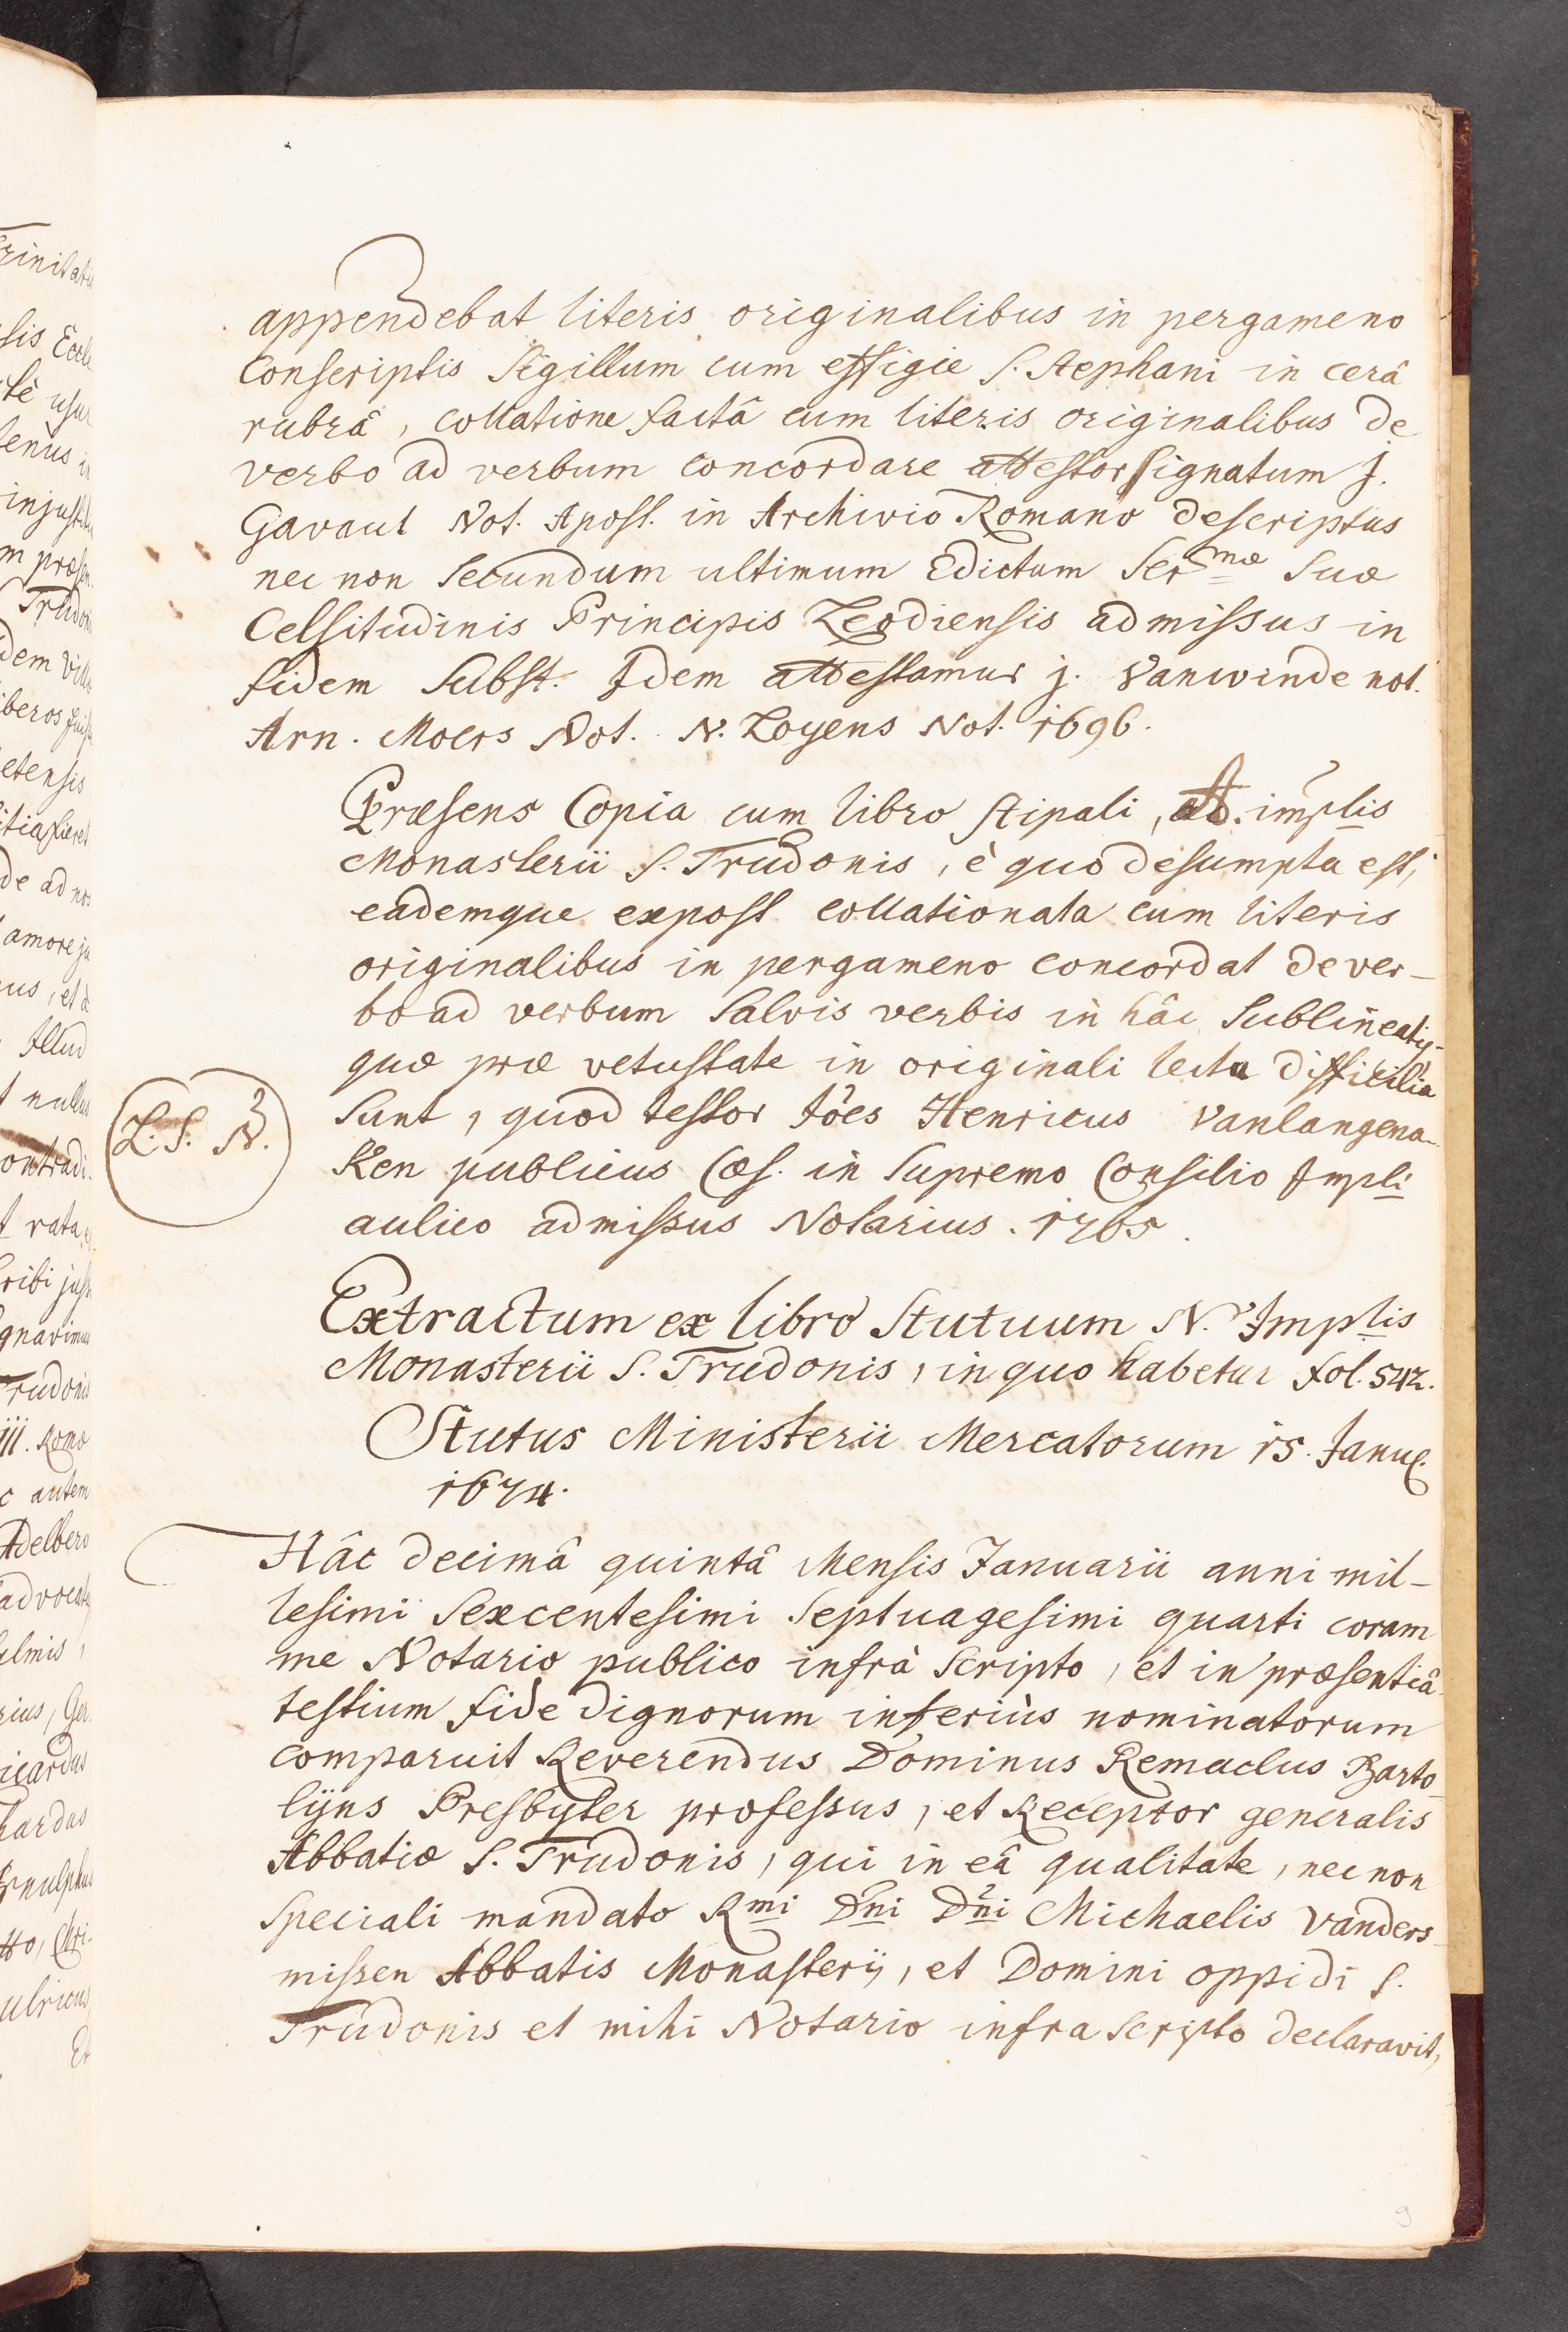 appendebat literis originalibus in pergameno
Conscriptis Sigillum cum effigie S. Stephani in cerâ
rubrâ, collatione factâ cum literis originalibus de
verbo ad verbum concordare attestor signatum J.
Gavaut Not. Apost. in Archivio Romano descriptus
nec non Secundum ultimum Edictum Ser<sup>mæ</sup> Suæ
Celsitudinis Principis Leodiensis admissus in
fidem Subst. Idem attestamur j. Vanwinde not.
Arn. Moers Not. N. Loyens Not. 1696.
Præsens Copia cum libro stipali, implis
Monasterii S. Trudonis, è quo desumpta est,
eademque expost collationata cum literis
originalibus in pergameno concordat de ver-
bo ad verbum Salvis verbis in hâc Sublineatis
quæ præ vetustate in originali lectu difficilia
Sunt, quod testor Jôes Henricus Vanlangena-
L. S. N.
Ken publicus Cæs. in Supremo Consilio Impli
aulico admissus Notarius. 1765.
Extractum ex libro Stutuum N. Implis
Monasterii S. Trudonis, in quo habetur fol. 542.
Stutus Ministerii Mercatorum 15. Janu.
1674.
Hâc decimâ quintâ Mensis Januarii anni mil-
lesimi Sexcentesimi Septuagesimi quarti coram
me Notario publico infrà Scripto, et in præsentiâ
testium fide dignorum inferiùs nominatorum
comparuit Reverendus Dominus Remaclus Barto-
lijns Presbyter professus, et Receptor generalis
Abbatiæ S. Trudonis, qui in eâ qualitate, nec non
Speciali mandato Rmi Dni Dni Michaelis Vanders-
missen Abbatis Monasterij, et Domini oppidi S.
Trudonis et mihi Notario infra Scripto declaravit,
9